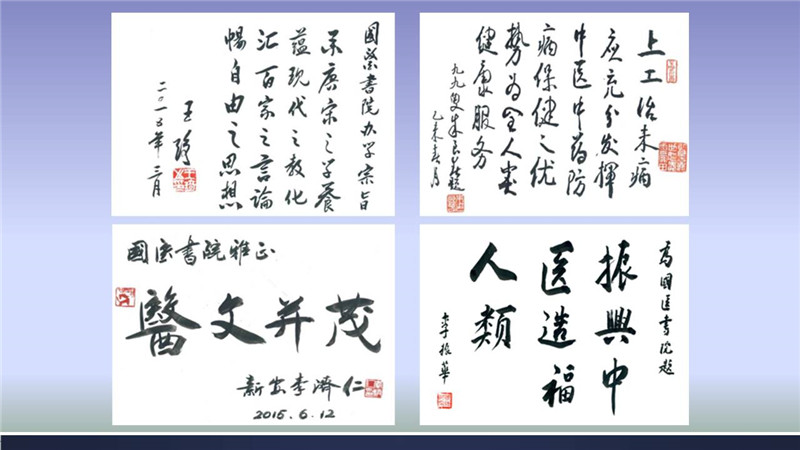 書院办学宗旨
承唐宋之学養
蕴现代之教化
汇百家之言論
暢自由之思想
王琦
二〇一五年三月
上工治未病
应充分发揮
中医中药防
病保健之优
势为全人类
健康服务
九九叟朱良春题
乙未春月
國医書院雅正
醫文并茂
新安李濟仁
2015.6.12
为國医書院题
振興中
医造福
人類
李振華